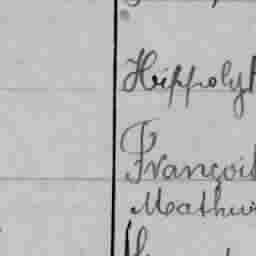 Hippolyt
François
Mathur